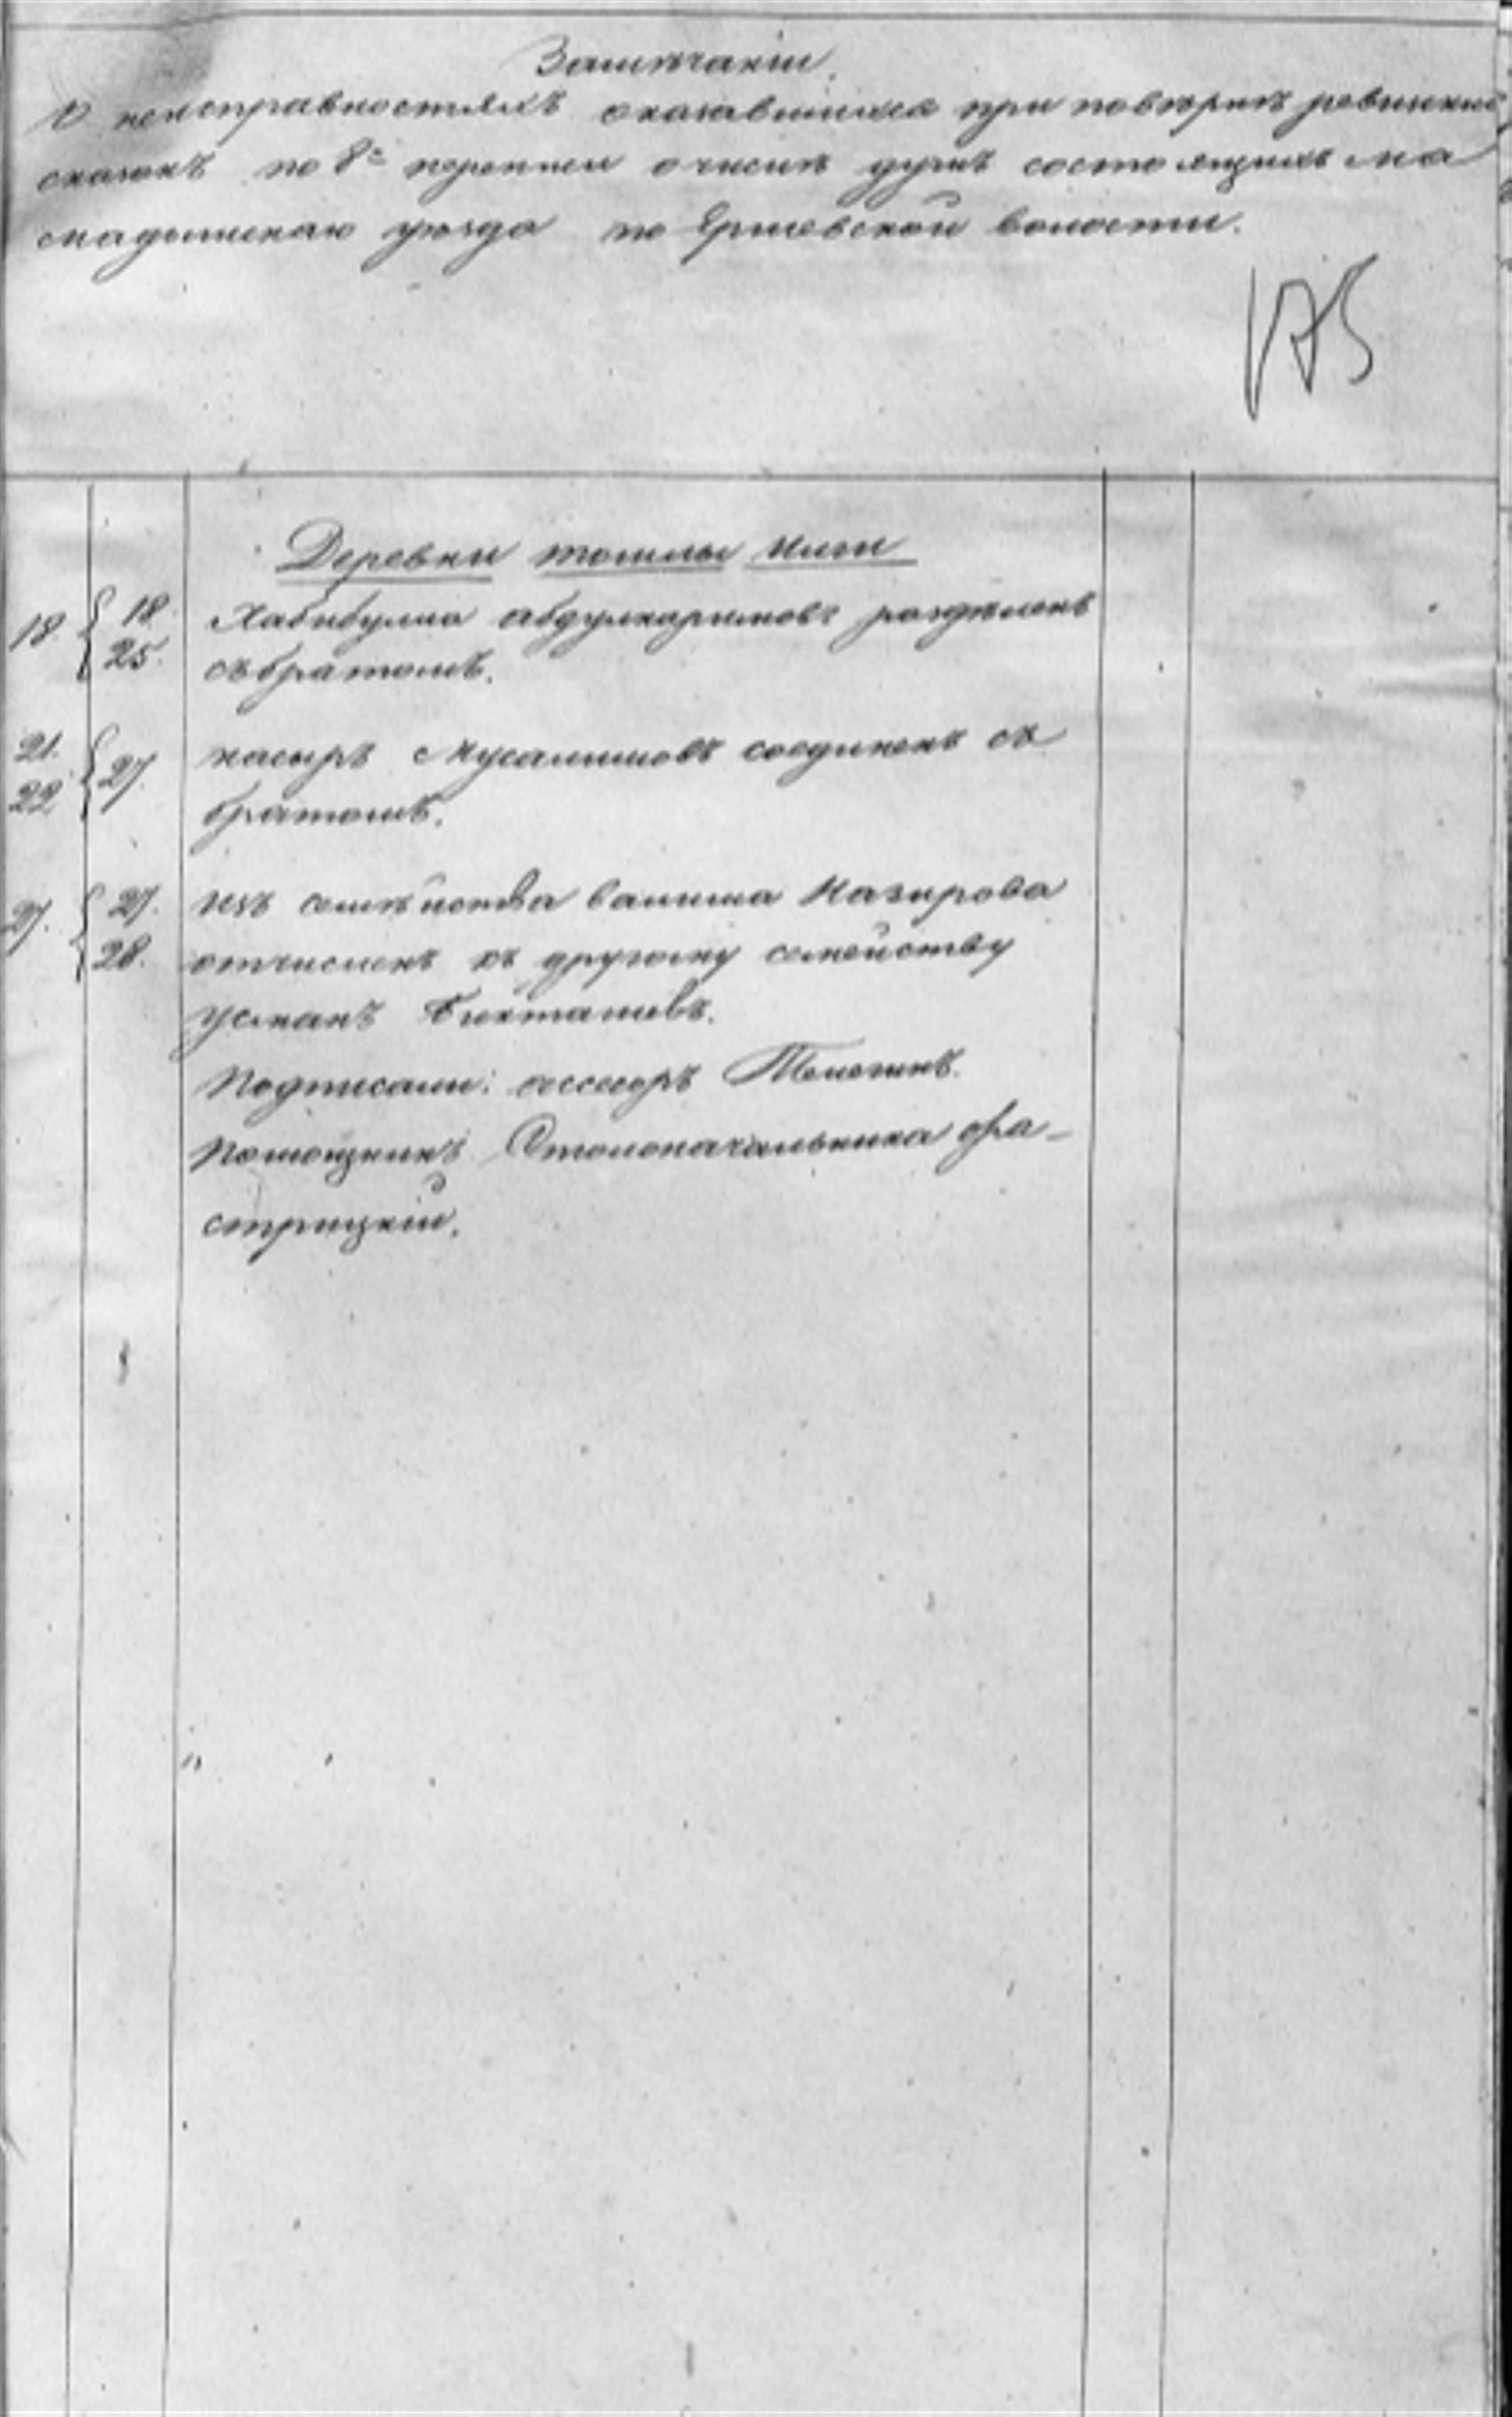 Замѣчаніи.
О неисправностяхъ оказавшихся при повѣркѣ ревизкихъ
сказокъ по 8й переписи о числѣ душъ состоящихъ Ма
мадышскаго уѣзда по волости.
175
Деревни Илги
18. { 18. 25. Хабибулла Абдулкаримовъ раздѣленъ
съ братомъ.
21. 22 } 27. Насыръ Мусалимовъ соединенъ съ
братомъ.
27. { 27. 28. Изъ семѣйства Назирова
отчисленъ къ другому семейству
Усманъ Бикташевъ.
Подписали: ассесоръ
Помощникъ Столоначальника
стрицкій.